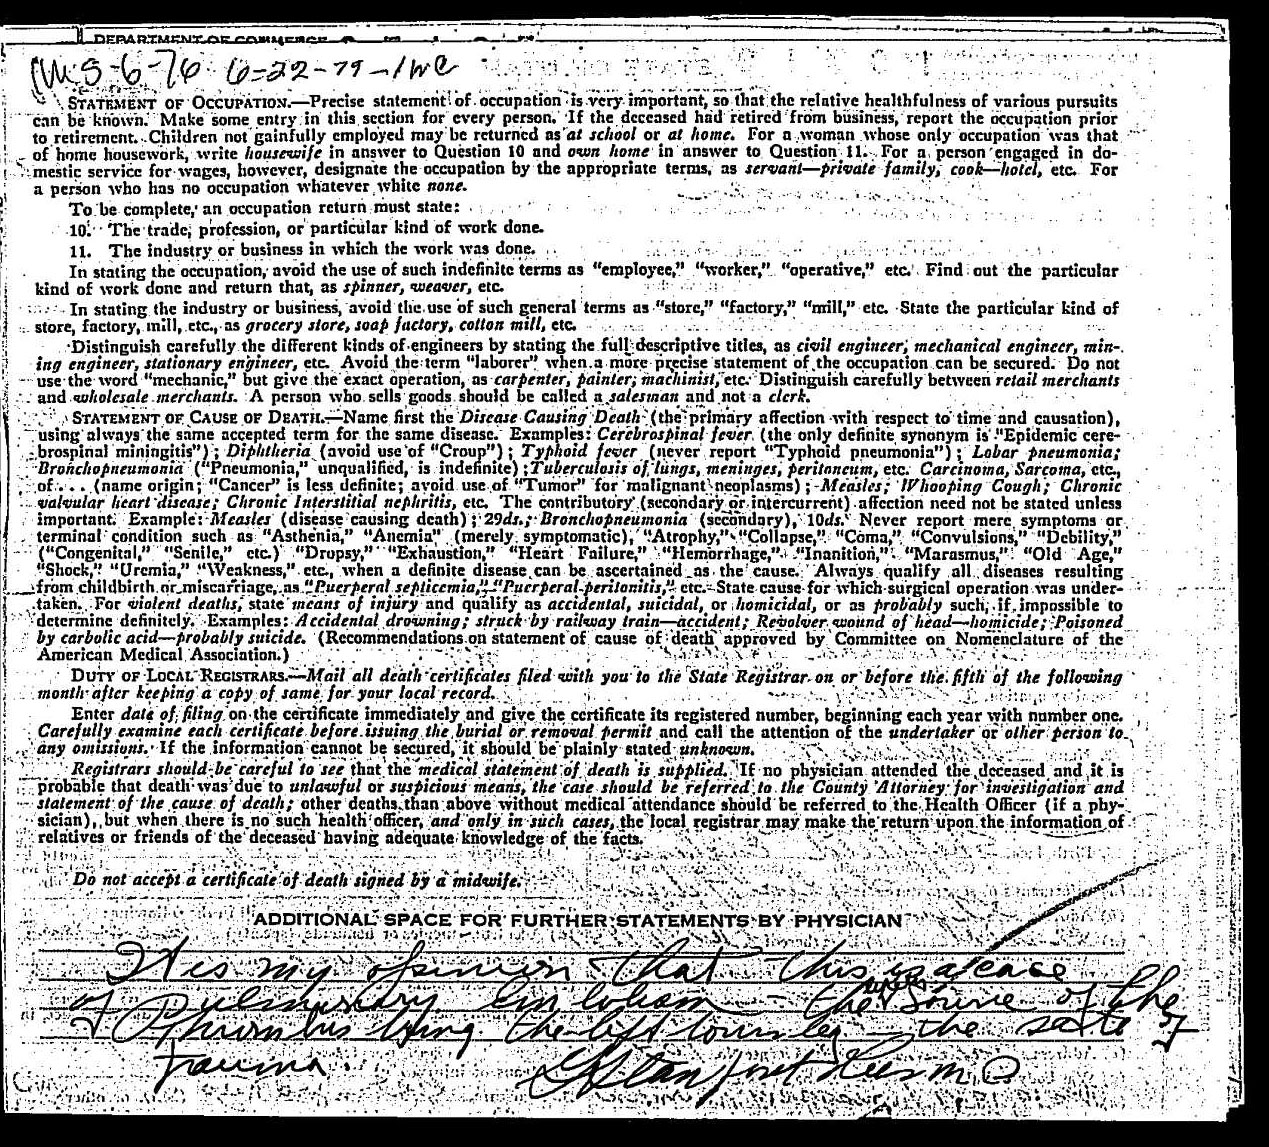 DEPARTMENT OF COMMERCE
5-6-76 6-22-79-1wc
STATEMENT OF OCCUPATION.—Precise statement of occupation is very important, so that the relative healthfulness of various pursuits
can be known. Make some entry in this section for every person. If the deceased had retired from business, report the occupation prior
to retirement. Children not gainfully employed may be returned as at school or at home. For a woman whose only occupation was that
of home housework, write housewife in answer to Question 10 and own home in answer to Question 11. For a person engaged in do-
mestic service for wages, however, designate the occupation by the appropriate terms, as servant—private family, cook—hotel, etc. For
a person who has no occupation whatever white none.
To be complete, an occupation return must state:
10. The trade, profession, or particular kind of work done.
11. The industry or business in which the work was done.
In stating the occupation, avoid the use of such indefinite terms as "employee," "worker," "operative," etc. Find out the particular
kind of work done and return that, as spinner, weaver, etc.
In stating the industry or business, avoid the use of such general terms as "store," "factory," "mill," etc. State the particular kind of
store, factory, mill, etc., as grocery store, soap factory, cotton mill, etc.
Distinguish carefully the different kinds of engineers by stating the full descriptive titles, as civil engineer, mechanical engineer, min-
ing engineer, stationary engineer, etc. Avoid the term "laborer" when a more precise statement of the occupation can be secured. Do not
use the word "mechanic," but give the exact operation, as carpenter, painter, machinist, etc. Distinguish carefully between retail merchants
and wholesale merchants. A person who sells goods should be called a salesman and not a clerk.
STATEMENT OF CAUSE OF DEATH.—Name first the Disease Causing Death (the primary affection with respect to time and causation),
using always the same accepted term for the same disease. Examples: Cerebrospinal fever (the only definite synonym is "Epidemic cere-
brospinal miningitis"); Diphtheria (avoid use of "Croup"); Typhoid fever (never report "Typhoid pneumonia"); Lobar pneumonia;
Bronchopneumonia ("Pneumonia," unqualified, is indefinite); Tuberculosis of lungs, meninges, peritoneum, etc. Carcinoma, Sarcoma, etc.,
of.... (name origin; "Cancer" is less definite; avoid use of "Tumor" for malignant neoplasms); Measles; Whooping Cough; Chronic
valvular heart disease; Chronic Interstitial nephritis, etc. The contributory (secondary or intercurrent) affection need not be stated unless
important. Example: Measles (disease causing death); 29ds.; Bronchopneumonia (secondary), 10ds. Never report mere symptoms or
terminal condition such as "Asthenia," "Anemia" (merely symptomatic), "Atrophy," "Collapse," "Coma," "Convulsions," "Debility,"
("Congenital," "Senile," etc.) "Dropsy," "Exhaustion," "Heart Failure," "Hemorrhage," "Inanition," "Marasmus," "Old Age,"
"Shock," "Uremia," "Weakness," etc., when a definite disease can be ascertained as the cause. Always qualify all diseases resulting
from childbirth or miscarriage, as "Puerperal septicemia," "Puerperal peritonitis," etc. State cause for which surgical operation was under-
taken. For violent deaths, state means of injury and qualify as accidental, suicidal, or homicidal, or as probably such, if impossible to
determine definitely. Examples: Accidental drowning; struck by railway train—accident; Revolver wound of head—homicide; Poisoned
by carbolic acid—probably suicide. (Recommendations on statement of cause of death approved by Committee on Nomenclature of the
American Medical Association.)
DUTY OF LOCAL REGISTRARS.—Mail all death certificates filed with you to the State Registrar on or before the fifth of the following
month after keeping a copy of same for your local record.
Enter date of filing on the certificate immediately and give the certificate its registered number, beginning each year with number one.
Carefully examine each certificate before issuing the burial or removal permit and call the attention of the undertaker or other person to
any omissions. If the information cannot be secured, it should be plainly stated unknown.
Registrars should be careful to see that the medical statement of death is supplied. If no physician attended the deceased and it is
probable that death was due to unlawful or suspicious means, the case should be referred to the County Attorney for investigation and
statement of the cause of death; other deaths than above without medical attendance should be referred to the Health Officer (if a phy-
sician), but when there is no such health officer, and only in such cases, the local registrar may make the return upon the information of
relatives or friends of the deceased having adequate knowledge of the facts.
Do not accept a certificate of death signed by a midwife.
ADDITIONAL SPACE FOR FURTHER STATEMENTS BY PHYSICIAN
It is my opinion that this is a case
of pulmonary Embolism - the source of the
Thrombus being the left lower leg - the site of
Trauma.